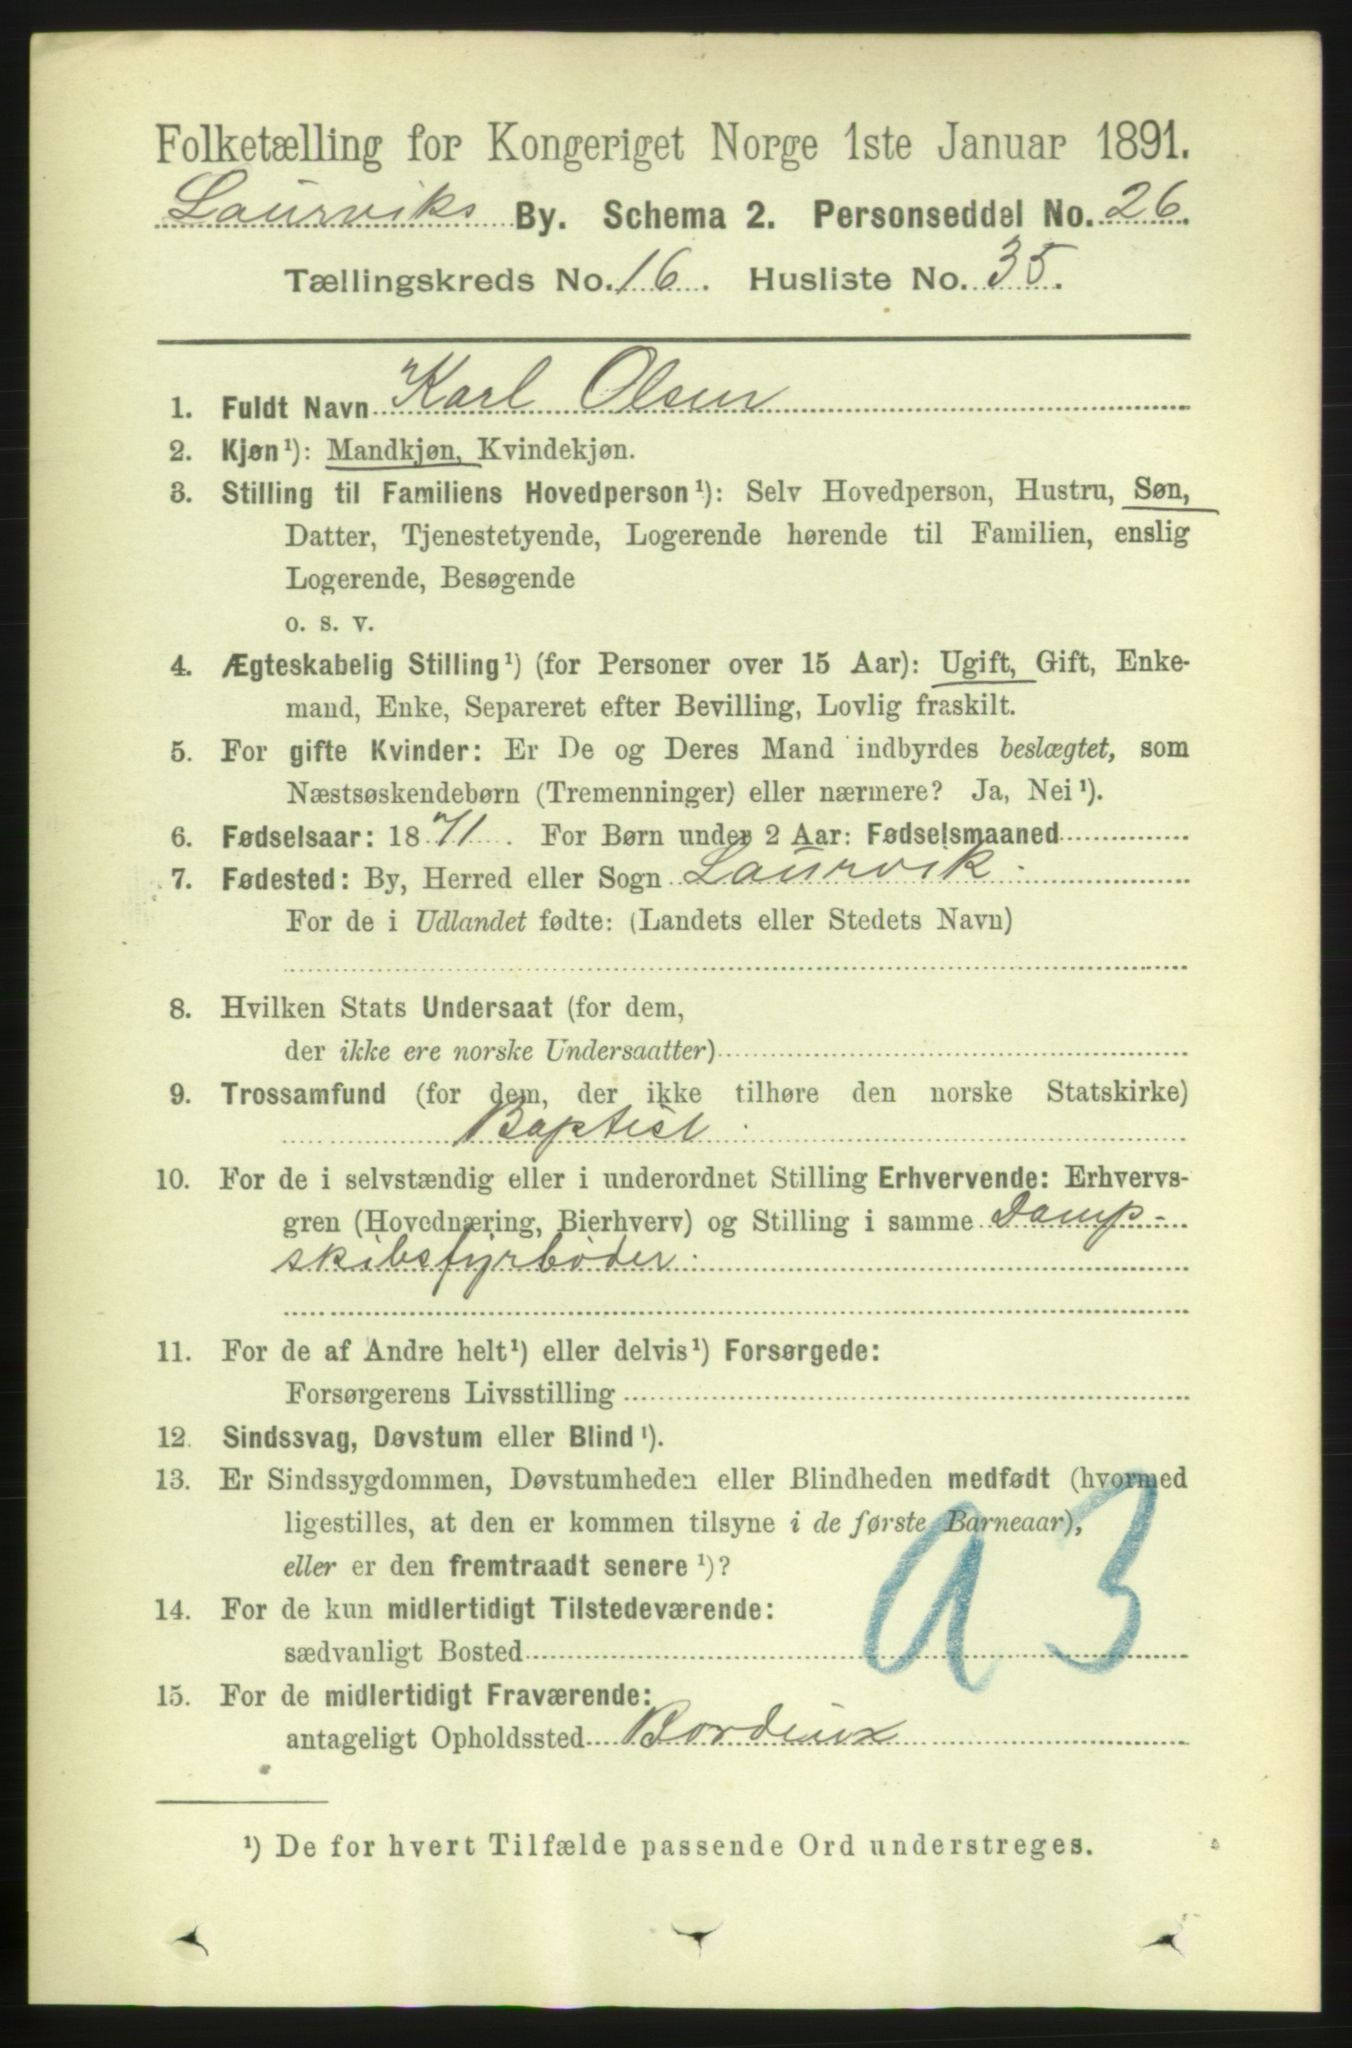 Folketælling for Kongeriget Norge 1ste Januar 1891.
Laurviks By. Schema 2. Personseddel No. 26.
Tællingskreds No. 16. Husliste No. 35.
1. Fuldt Navn Karl Olsen
2. Kjøn¹): Mandkjøn, Kvindekjøn.
3. Stilling til Familiens Hovedperson¹): Selv Hovedperson, Hustru, Søn,
Datter, Tjenestetyende, Logerende hørende til Familien, enslig
Logerende, Besøgende
o. s. v.
4. Ægteskabelig Stilling¹) (for Personer over 15 Aar): Ugift, Gift, Enke-
mand, Enke, Separeret efter Bevilling, Lovlig fraskilt.
5. For gifte Kvinder: Er De og Deres Mand indbyrdes beslægtet, som
Næstsøskendebørn (Tremenninger) eller nærmere? Ja, Nei¹).
6. Fødselsaar: 1871. For Børn under 2 Aar: Fødselsmaaned
7. Fødested: By, Herred eller Sogn Laurvik
For de i Udlandet fødte: (Landets eller Stedets Navn)
8. Hvilken Stats Undersaat (for dem,
der ikke ere norske Undersaatter)
9. Trossamfund (for dem, der ikke tilhøre den norske Statskirke)
Baptist
10. For de i selvstændig eller i underordnet Stilling Erhvervende: Erhvervs-
gren (Hovednæring, Bierhverv) og Stilling i samme Damp-
skibsfyrbøder
11. For de af Andre helt¹) eller delvis¹) Forsørgede:
Forsørgerens Livsstilling
12. Sindssvag, Døvstum eller Blind¹).
13. Er Sindssygdommen, Døvstumheden eller Blindheden medfødt (hvormed
ligestilles, at den er kommen tilsyne i de første Barneaar),
eller er den fremtraadt senere¹)?
a 3
14. For de kun midlertidigt Tilstedeværende:
sædvanligt Bosted
15. For de midlertidigt Fraværende:
antageligt Opholdssted Bordeux
¹) De for hvert Tilfælde passende Ord understreges.